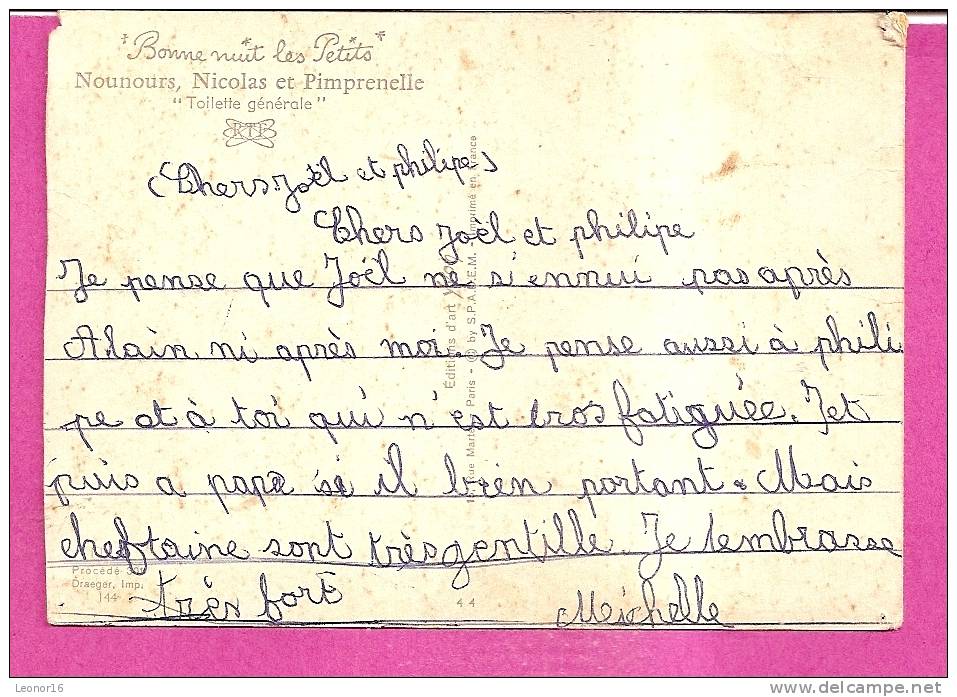 "Bonne nuit les Petits"
Nounours, Nicolas et Pimprenelle
"Toilette générale"
RTF
(Chers Joël et philipe)
Chers Joèl et philipe
Je pense que Joël ne s'ennui pas après
Alain ni après moi. Je pense aussi à phili
pe et à toi qui n'est tros fatiguée. Jet
puis a papa si il bien portant. Mais
cheftaine sont très gentille. Je tembrasse
très fort
Michelle
Éditions d'art
Rue Paris - © by S.P.A.D.E.M. Imprimé en France
Procédé
Draeger, Imp.
144
44
Leonor16
www.delcampe.net